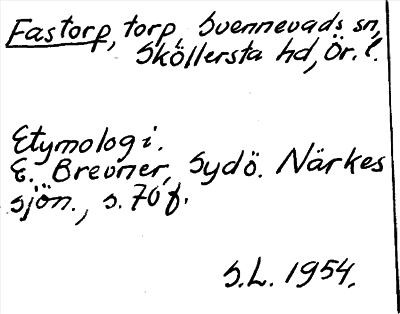 Fastorp, torp, Svennevads sn,
Sköllersta hd, Ör. l.
Etymologi.
E. Brevner, Sydö. Närkes
sjön., s. 70 f.
S.L. 1954.